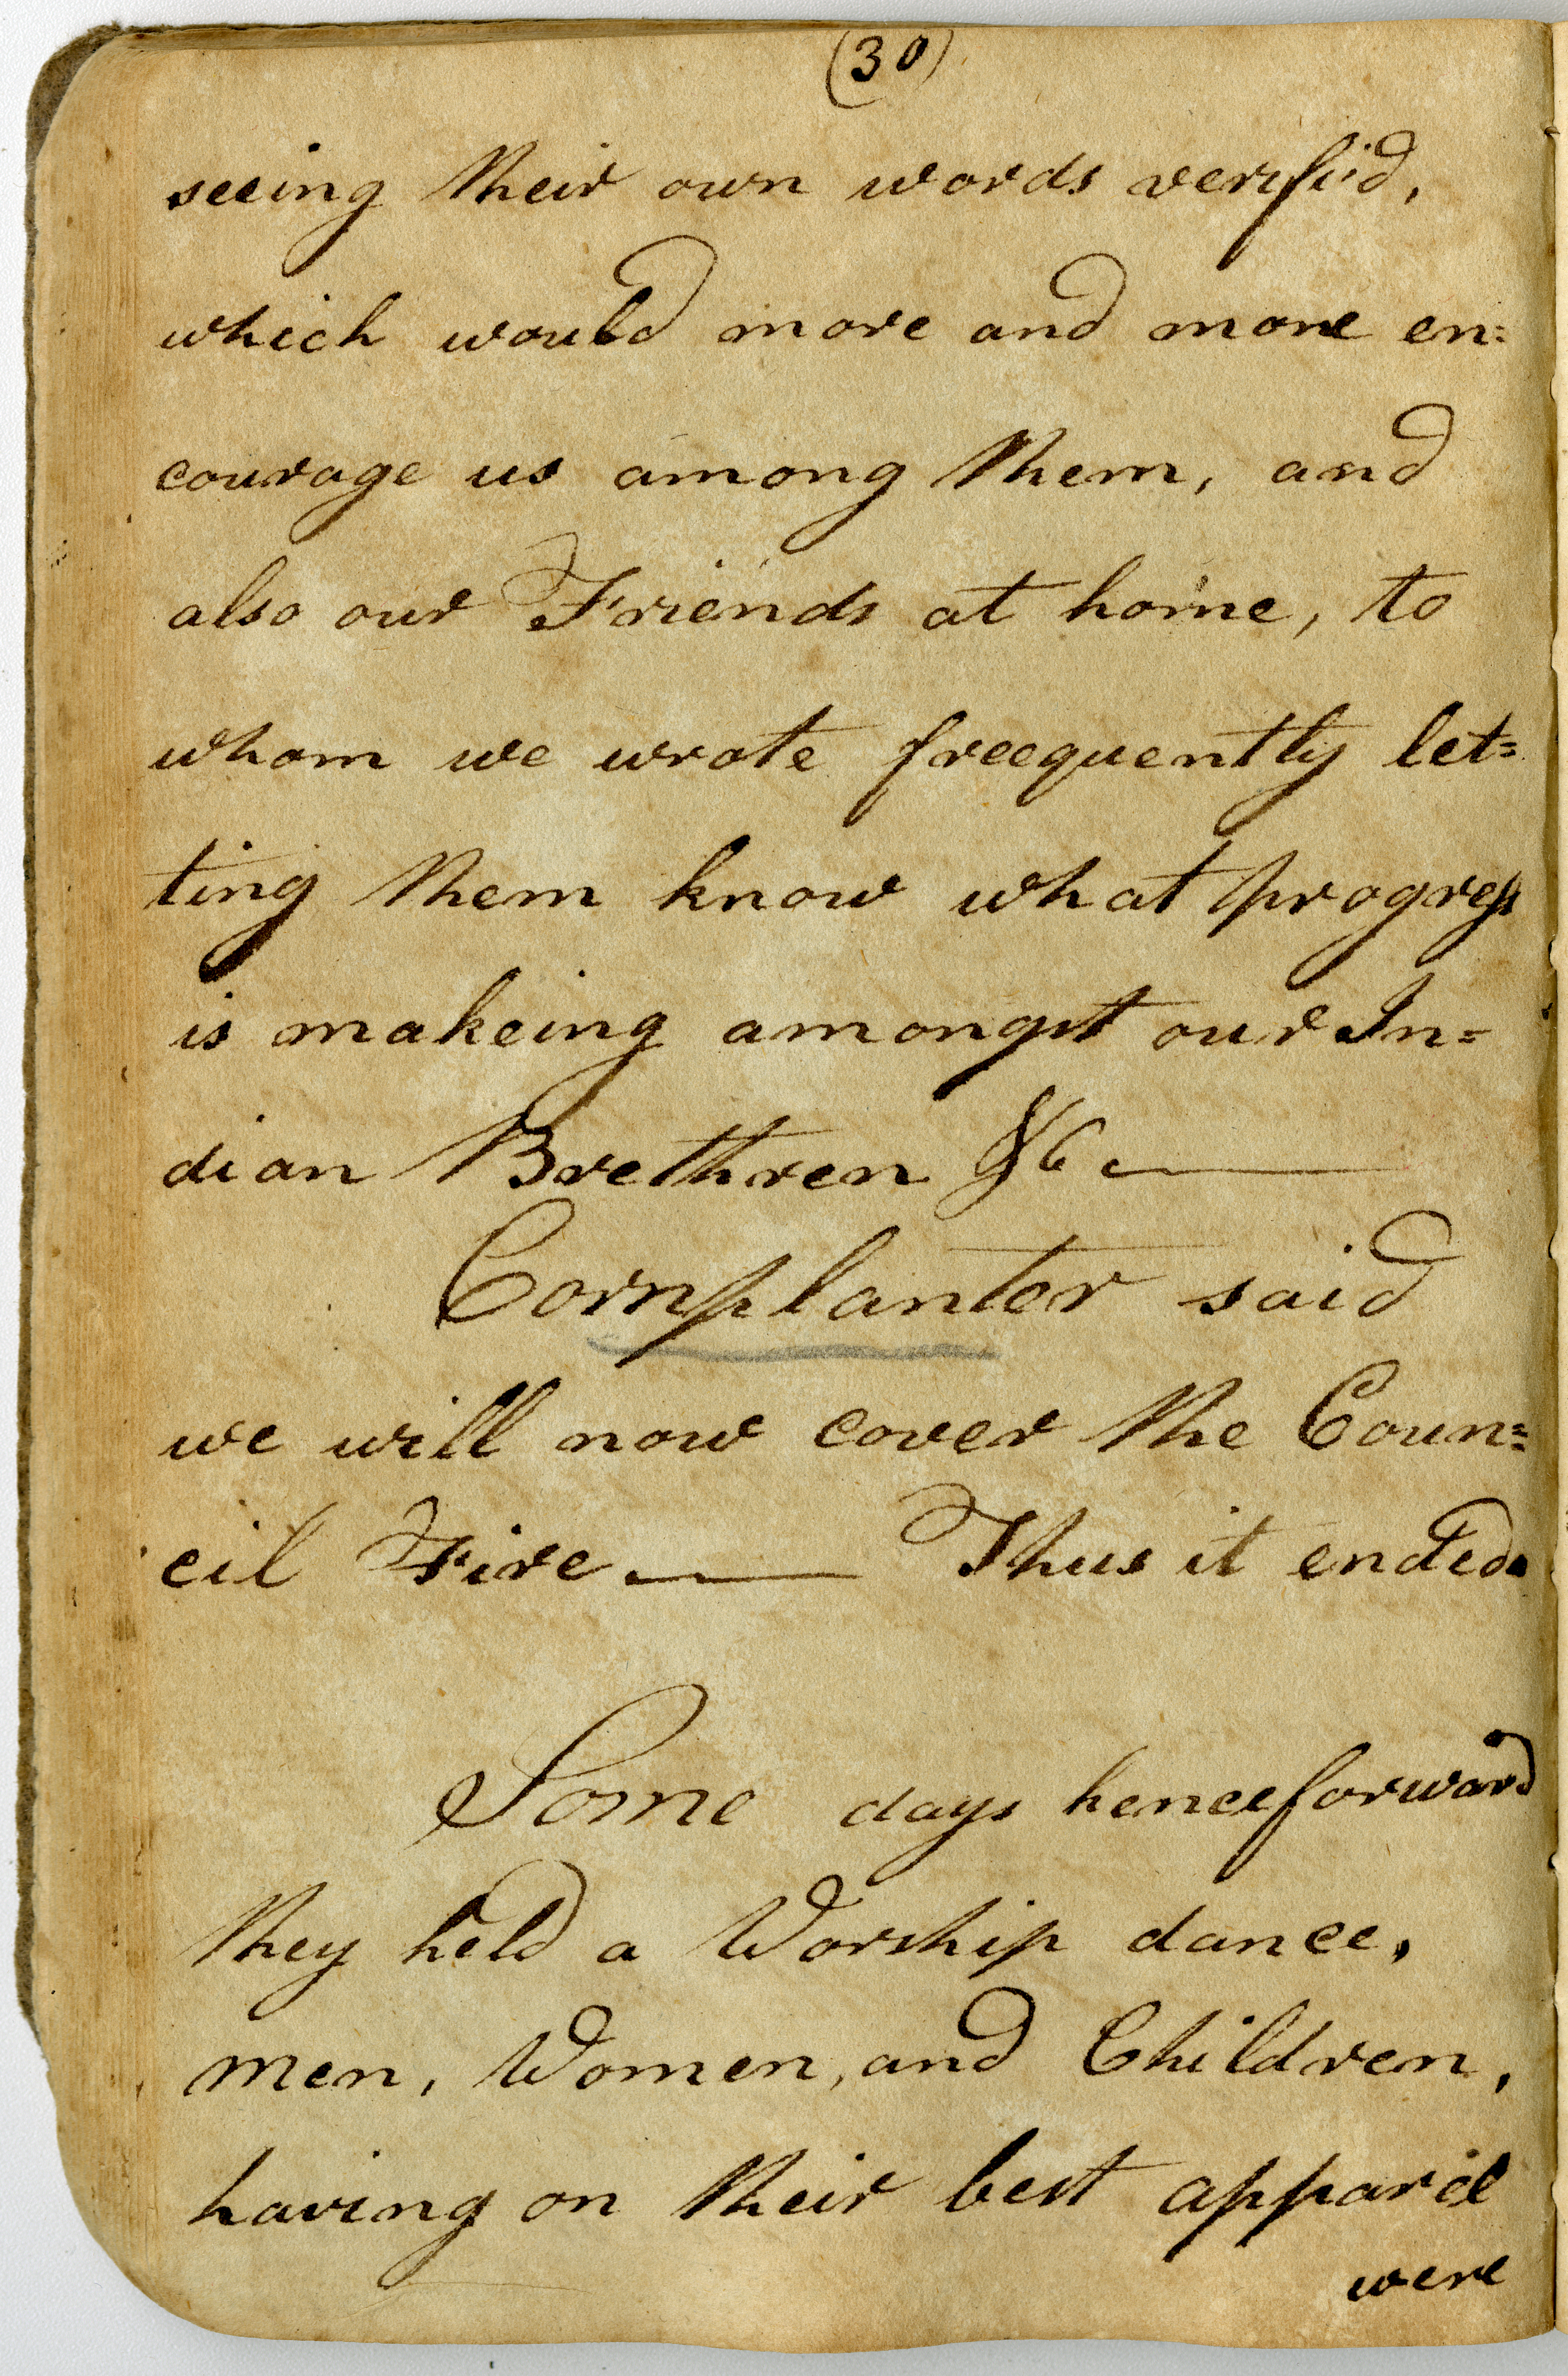 (30)
seeing their own words verifi'd,
which would more and more en=
courage us among them, and
also our Friends at home, to
whom we wrote freequently let=
ting them know what progress
is makeing amongst our In=
dian Brethren &c
Cornplanter said
we will now cover the Coun=
cil Fire — Thus it ended.
Some days henceforward
they held a Worship dance,
men, Women, and Children,
having on their best apparel
were